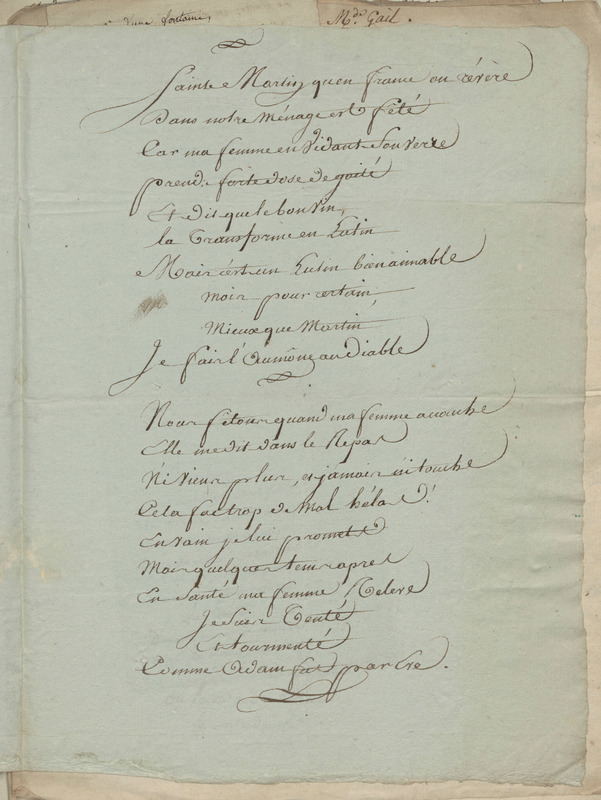 d'une fontaine,
M.de Gail.
Sainte Martin quen france on révère
Dans notre Ménage est fété
Car ma femme en Vidant Son verre
prend forte dose de gaité
Et dit que le bon Vin,
la Transforme en Lutin
Mais c'est un Lutin bien aimable
Mois pour certain,
Mieux que Martin
Je fais l'Aumône au Diable
Nous fétons quand ma femme accouche
Elle me dit dans le Repas
N'i Viens plus, et jamais n'i touche
Cela fas trop de Mal hélas!
En vain je lui promets
Mais quelques tems apres
En Santé ma femme Releve
Je Suis Tenté
Et tourmenté
Comme Adam fut par Eve.